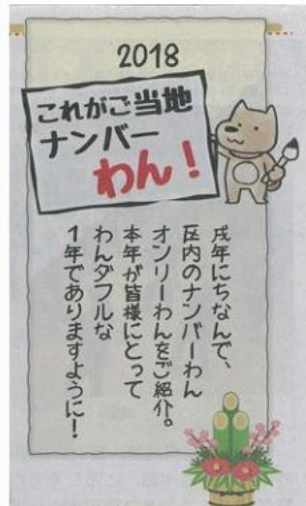 2018
これがご当地
ナンバー
わん！
戌年にちなんで、
区内のナンバーわん
オンリーわんをご紹介。
本年が皆様にとって
わんダフルな
1年でありますように！